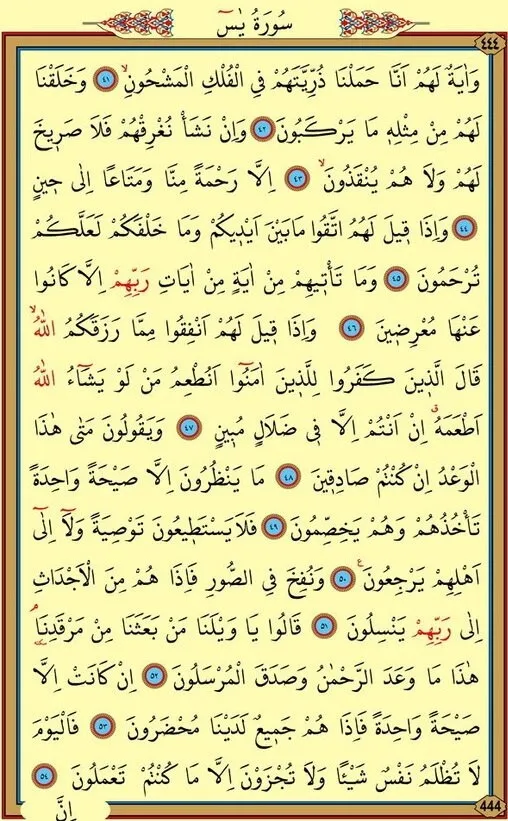 سُورَةُ يٰسٓ
٤٤٤
وَاٰيَةٌ لَهُمْ اَنَّا حَمَلْنَا ذُرِّيَّتَهُمْ فِي الْفُلْكِ الْمَشْحُونِۙ ٤١ وَخَلَقْنَا
لَهُمْ مِنْ مِثْلِه۪ مَا يَرْكَبُونَ ٤٢ وَاِنْ نَشَأْ نُغْرِقْهُمْ فَلَا صَر۪يخَ
لَهُمْ وَلَا هُمْ يُنْقَذُونَۙ ٤٣ اِلَّا رَحْمَةً مِنَّا وَمَتَاعًا اِلٰى ح۪ينٍ
٤٤ وَاِذَا ق۪يلَ لَهُمُ اتَّقُوا مَابَيْنَ اَيْد۪يكُمْ وَمَا خَلْفَكُمْ لَعَلَّكُمْ
تُرْحَمُونَ ٤٥ وَمَا تَأْت۪يهِمْ مِنْ اٰيَةٍ مِنْ اٰيَاتِ رَبِّهِمْ اِلَّا كَانُوا
عَنْهَا مُعْرِض۪ينَ ٤٦ وَاِذَا ق۪يلَ لَهُمْ اَنْفِقُوا مِمَّا رَزَقَكُمُ اللّٰهُۙ
قَالَ الَّذ۪ينَ كَفَرُوا لِلَّذ۪ينَ اٰمَنُٓوا اَنُطْعِمُ مَنْ لَوْ يَشَٓاءُ اللّٰهُ
اَطْعَمَهُۗ اِنْ اَنْتُمْ اِلَّا ف۪ي ضَلَالٍ مُب۪ينٍ ٤٧ وَيَقُولُونَ مَتٰى هٰذَا
الْوَعْدُ اِنْ كُنْتُمْ صَادِق۪ينَ ٤٨ مَا يَنْظُرُونَ اِلَّا صَيْحَةً وَاحِدَةً
تَأْخُذُهُمْ وَهُمْ يَخِصِّمُونَ ٤٩ فَلَا يَسْتَط۪يعُونَ تَوْصِيَةً وَلَٓا اِلٰٓى
اَهْلِهِمْ يَرْجِعُونَ۟ ٥٠ وَنُفِخَ فِي الصُّورِ فَاِذَا هُمْ مِنَ الْاَجْدَاثِ
اِلٰى رَبِّهِمْ يَنْسِلُونَ ٥١ قَالُوا يَا وَيْلَنَا مَنْ بَعَثَنَا مِنْ مَرْقَدِنَاۢ
هٰذَا مَا وَعَدَ الرَّحْمٰنُ وَصَدَقَ الْمُرْسَلُونَ ٥٢ اِنْ كَانَتْ اِلَّا
صَيْحَةً وَاحِدَةً فَاِذَا هُمْ جَم۪يعٌ لَدَيْنَا مُحْضَرُونَ ٥٣ فَالْيَوْمَ
لَا تُظْلَمُ نَفْسٌ شَيْـًٔا وَلَا تُجْزَوْنَ اِلَّا مَا كُنْتُمْ تَعْمَلُونَ ٥٤
اِنَّ
444